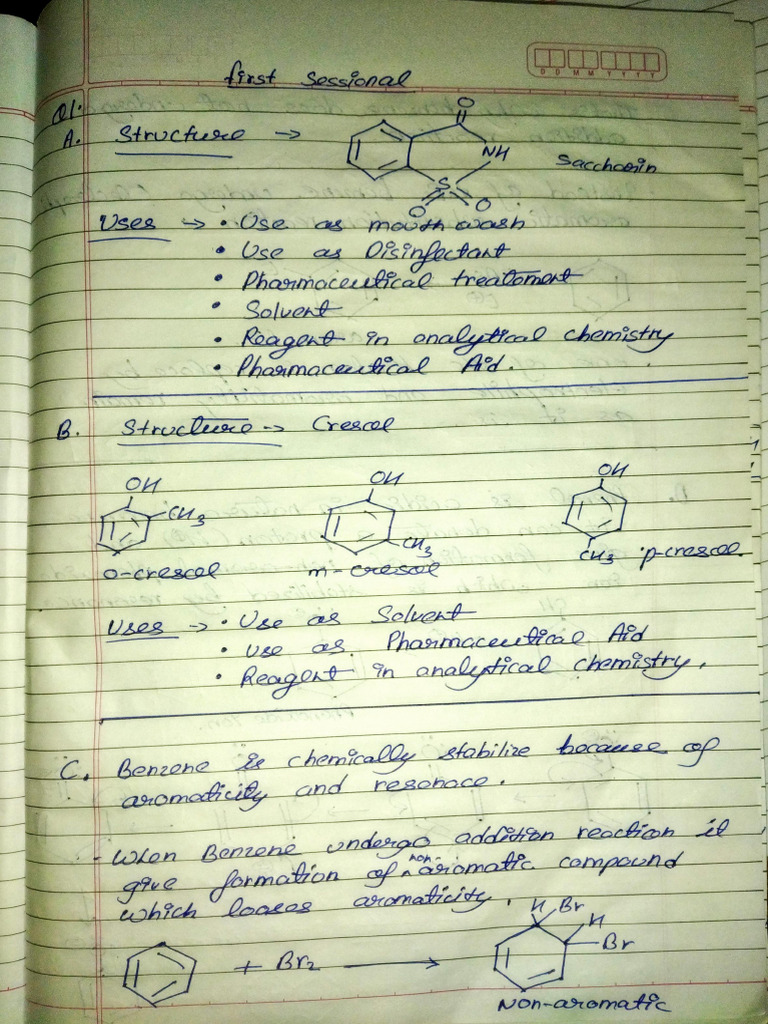 D D M M Y Y Y Y
first Sessional
Q1.
A. Structure →
O
NH
S
O O
Saccharin
Uses → • Use as mouth wash
• Use as Disinfectant
• Pharmaceutical treatement
• Solvent
• Reagent in analytical chemistry
• Pharmaceutical Aid.
B. Structure → Cresol
OH OH OH
CH3 CH3 CH3
o-cresol m-cresol p-cresol.
Uses → • Use as Solvent
• use as Pharmaceutical Aid
• Reagent in analytical chemistry.
C. Benzene is chemically stabilize because of
aromaticity and resonace.
- When Benzene undergo addition reaction it
give formation of non-aromatic compound
which looses aromaticity.
H Br
H
+ Br2 → Br
Non-aromatic